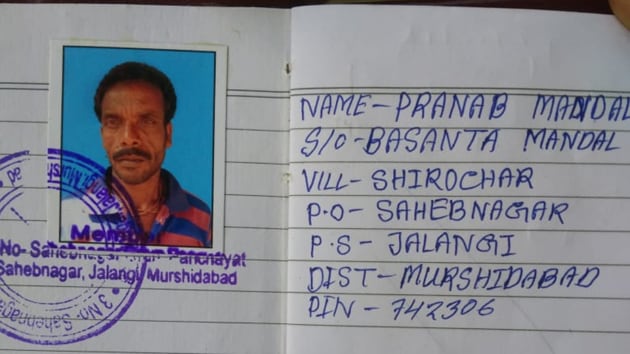 NAME - PRANAB MANDAL
S/O - BASANTA MANDAL
VILL - SHIROCHAR
P.O - SAHEBNAGAR
P.S - JALANGI
DIST - MURSHIDABAD
PIN - 742306
Panchayat
Sahebnagar, Jalangi, Murshidabad